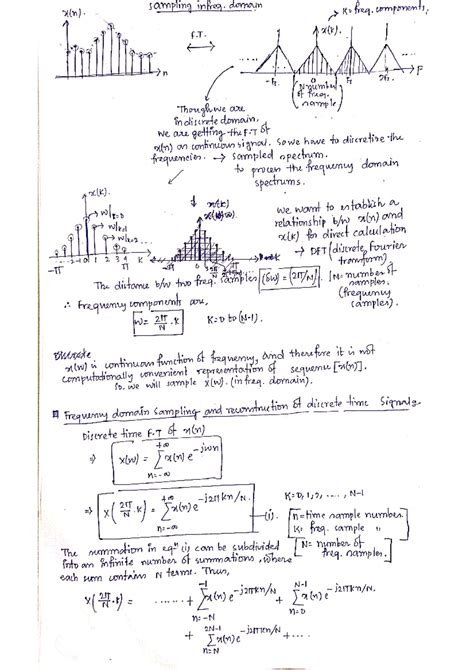 Sampling in freq. domain
x(n).
K = freq. components.
x(k).
F.T.
n
-Fs 0 Fs 2Fs F
(N number of freq. sample)
Though we are
in discrete domain,
we are getting the F.T of
x(n) as continuous signal. So we have to discretise the
frequencies. → Sampled spectrum.
to process the frequency domain
spectrums.
x(k).
w|k=0
w|k=1
w|k=2 ...
-π -2 -1 0 1 2 3 4 π K
x(k)
we want to establish a
relationship b/w x(n) and
x(k) for direct calculation
→ DFT (discrete fourier
transform)
The distance b/w two freq. samples (δw) = (2π/N).
N = number of
samples.
(frequency
samples).
∴ Frequency components are,
w = 2π/N . K K = 0 to (N-1).
Discrete
x(w) is continuous function of frequency, and therefore it is not
computationally convenient representation of sequence [x(n)].
so we will sample x(w). (in freq. domain).
Frequency domain sampling and reconstruction of discrete time signals
Discrete time F.T of x(n)
⇒ X(w) = +∞ Σ n=-∞ x(n) e^-jwn
⇒ X(2π/N .K) = +∞ Σ n=-∞ x(n) e^-j2πkn/N. —(i). K = 0, 1, 2, ...., N-1
n = time sample number.
K = freq. sample "
N = number of
freq. samples.
The summation in eqn (i) can be subdivided
into an infinite number of summations, where
each sum contains N terms. Thus,
X(2π/N .k) = ...... + -1 Σ n=-N x(n) e^-j2πkn/N + N-1 Σ n=0 x(n) e^-j2πkn/N
+ 2N-1 Σ n=N x(n) e^-j2πkn/N + ....